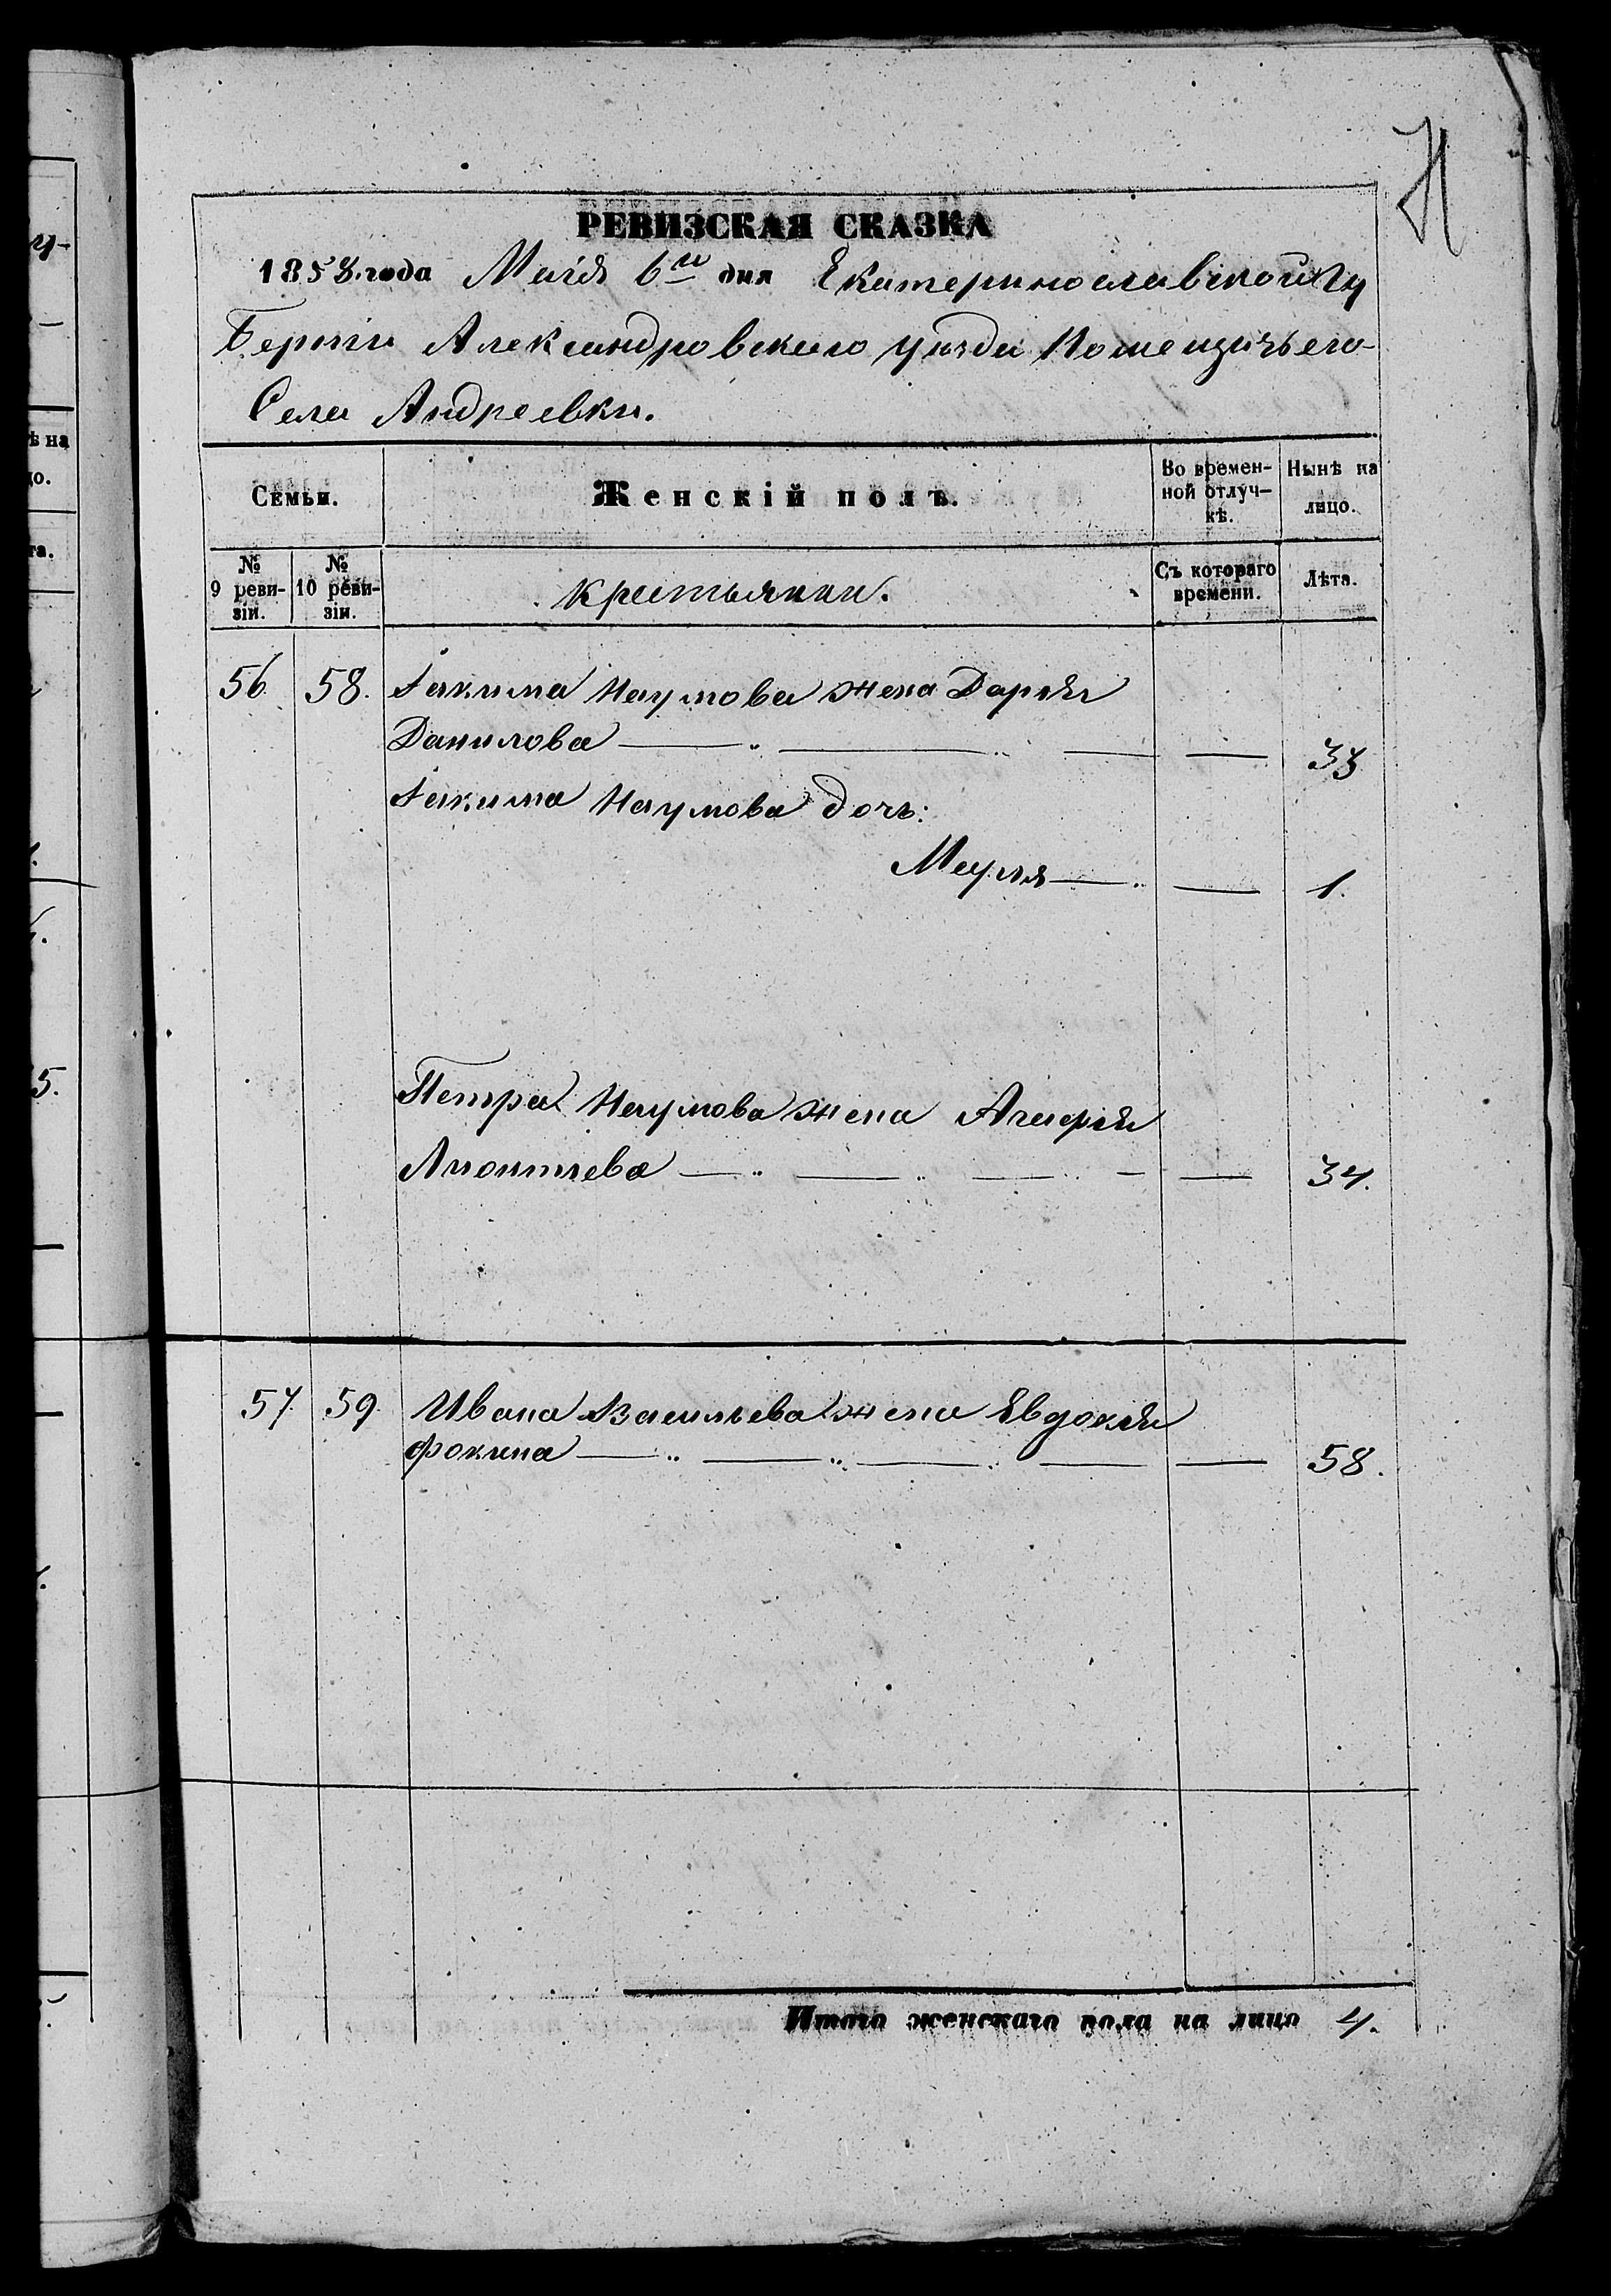 Н
РЕВИЗСКАЯ СКАЗКА
1858 года Маія 6го дня Екатеринославской Гу
берніи Александровскаго уѣзда Помещичьего
Села Андреевки.
Семьи. Женскій полъ. Во времен- Нынѣ на
ной отлуч- лицо.
кѣ.
№ № Съ котораго Лѣта.
9 реви- 10 реви- крестьянки. времени.
зіи. зіи.
56. 58. Іакима Наумова жена Дарія
Данилова — — — — 33
Іакима Наумова дочь:
Марія — — 1.
Петра Наумова жена Агафія
Леонтіева — — — — — 34.
57. 59. Ивана Васильева жена Евдокія
Фокина — — — — — 58.
Итого женскаго пола на лицо 4.